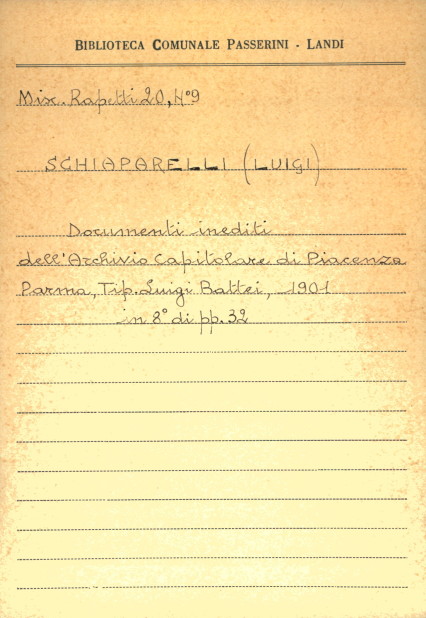 BIBLIOTECA COMUNALE PASSERINI - LANDI
Mix. Rapetti 20, N° 9
SCHIAPARELLI (LUIGI)
Documenti inediti
dell'Archivio Capitolare di Piacenza
Parma, Tip. Luigi Battei, 1901
in 8° di pp. 32